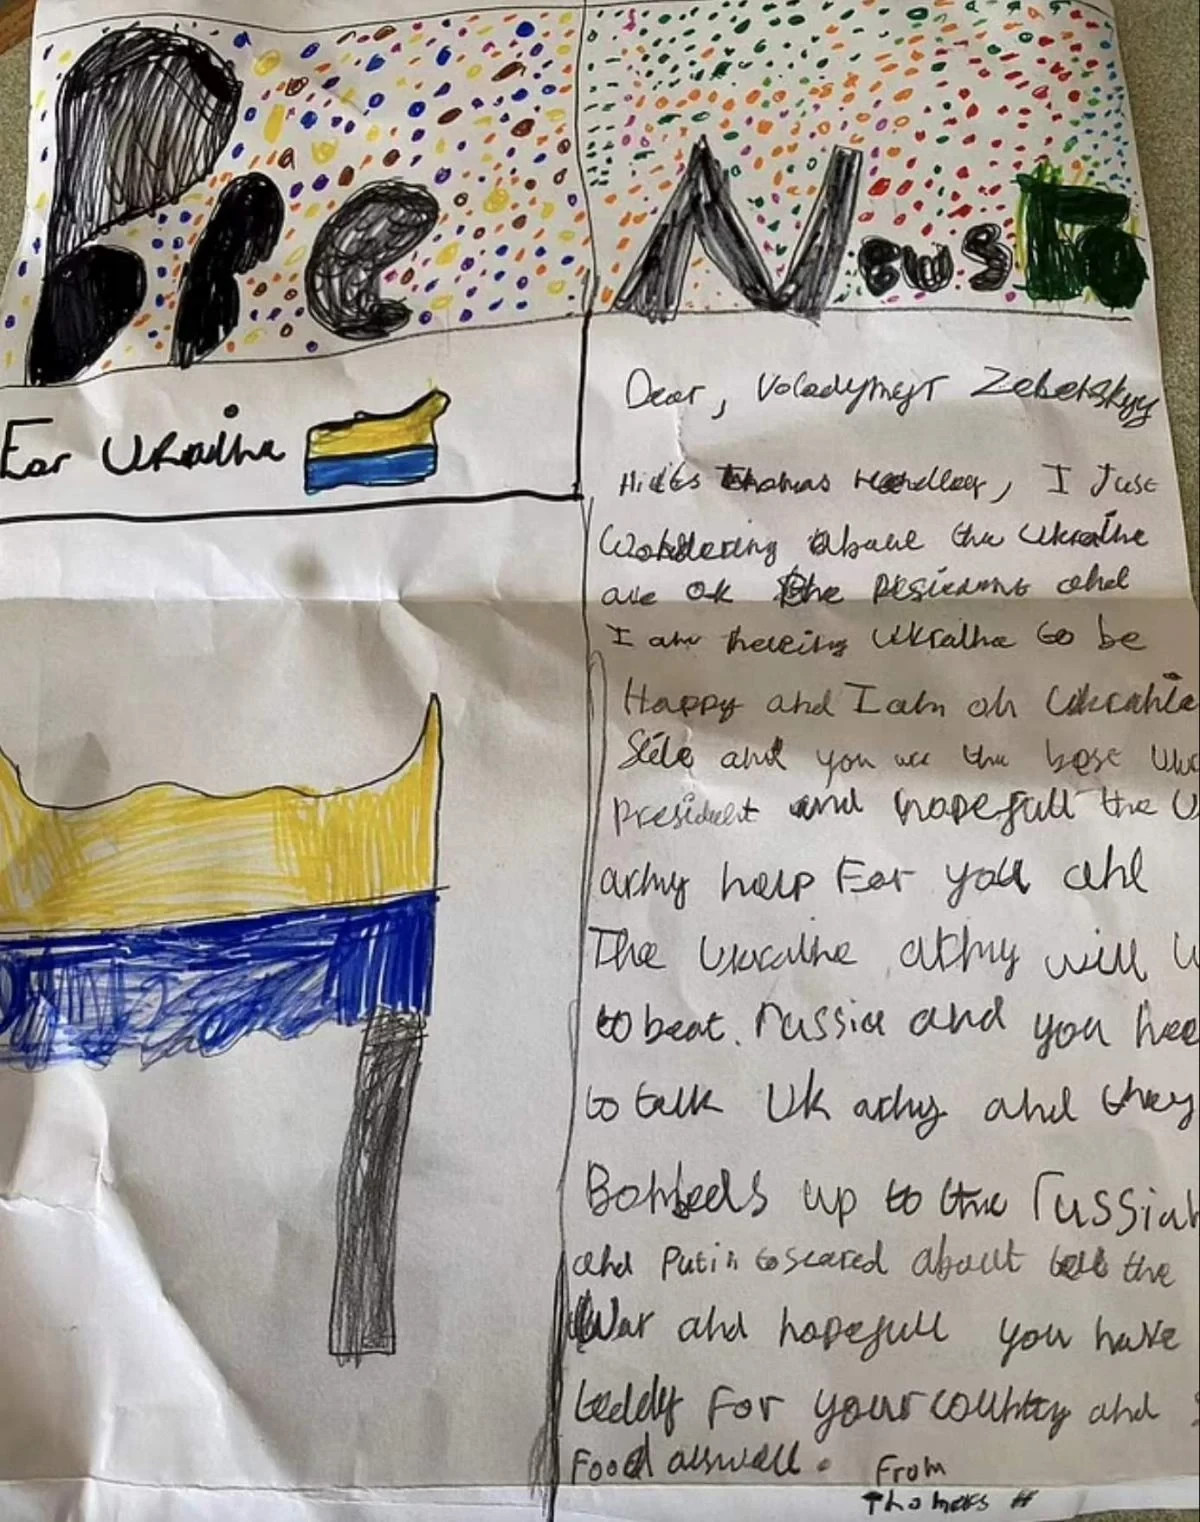 For Ukraihe
News
Dear, Voladymyr Zebelskyy
Hi its Thomas, I Just
Wondering about the Ukraihe
are ok the and
I am Ukraihe to be
Happy and I am oh Ukrahie
Side and you are the best
president and hopefull the
army help For you ahd
The Ukraihe army will
to beat. russia and you
to talk Uk army and they
up to the russiah
ahd Putin to scared about the
War and hopefull you have
teddy For your country and
Food aswell. From
Thomas H